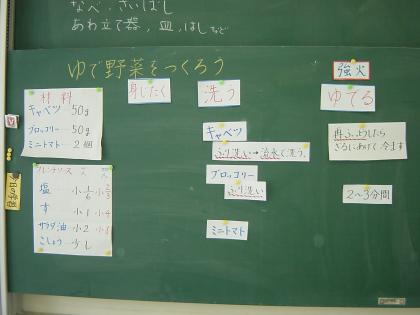 なべ、さいばし
あわ立て器、皿、はしなど
ゆで野菜をつくろう
強火
材料
キャベツ…50g
ブロッコリー…50g
ミニトマト…2個
身じたく
洗う
ゆでる
キャベツ
ふり洗い→流水で洗う。
ブロッコリー
ふり洗い
ミニトマト
再ふっとうしたら
ざるにあけて冷ます
2~3分間
フレンチソース
塩……小1/6 小2/3
す……小1 小4
サラダ油 小2 小8
こしょう…少し
今日の学習